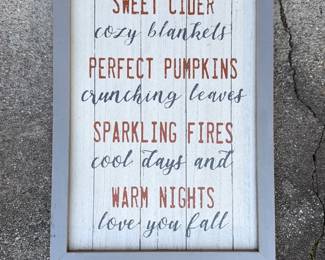 SWEET CIDER
cozy blankets
PERFECT PUMPKINS
crunching leaves
SPARKLING FIRES
cool days and
WARM NIGHTS
love you fall